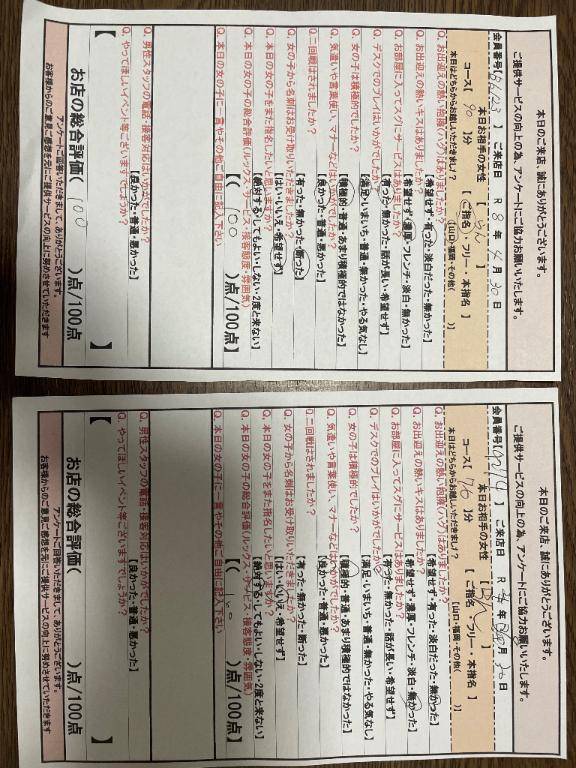 本日のご来店、誠にありがとうございます。
ご提供サービスの向上の為、アンケートにご協力お願いいたします。
会員番号【 】 ご来店日 R 8 年 4 月 30 日
コース【 90 】分 本日お相手の女性 【 】
【 ご指名 ・ フリー ・ 本指名 】
本日はどちらからお越しいただきました？ 【山口・福岡・その他( )】
Q. お出迎えの熱い抱擁(ハグ)はありましたか？
【希望せず・有った・淡白だった・無かった】
Q. お出迎えの熱いキスはありましたか？
【希望せず・濃厚・フレンチ・淡白・無かった】
Q. お部屋に入ってスグにサービスはありましたか？
【有った・無かった・話が長い・希望せず】
Q. デスクでのプレイはいかがでしたか？
【満足・いまいち・普通・無かった・やる気なし】
Q. 女の子は積極的でしたか？
【積極的・普通・あまり積極的ではなかった】
Q. 気遣いや言葉使い、マナーなどはいかがでしたか？
【良かった・普通・悪かった】
Q. 二回戦はされましたか？
【有った・無かった・断った】
Q. 女の子から名刺はお受け取りいただきましたか？
【有った・無かった・断った】
Q. 本日の女の子をまた指名したいと思いますか？
【はい・いいえ・希望せず】
Q. 本日の女の子の総合評価(ルックス・サービス・接客態度・雰囲気)
【絶対する・してもよい・しない・2度と来ない】
【( 100 )点/100点】
Q. 本日の女の子に一言やその他ご自由に記入下さい
Q. 男性スタッフの電話・接客対応はいかがでしたか？
【良かった・普通・悪かった】
Q. やってほしいイベント等ございますでしょうか？
【 】
お店の総合評価( 100 )点/100点
アンケートご回答いただきまして、ありがとうございます。
お客様からのご意見ご感想を元にご提供サービスの向上に努めさせていただきます
本日のご来店、誠にありがとうございます。
ご提供サービスの向上の為、アンケートにご協力お願いいたします。
会員番号【 】 ご来店日 R 年 月 30 日
コース【 70 】分 本日お相手の女性 【 】
【 ご指名 ・ フリー ・ 本指名 】
本日はどちらからお越しいただきました？ 【山口・福岡・その他( )】
Q. お出迎えの熱い抱擁(ハグ)はありましたか？
【希望せず・有った・淡白だった・無かった】
Q. お出迎えの熱いキスはありましたか？
【希望せず・濃厚・フレンチ・淡白・無かった】
Q. お部屋に入ってスグにサービスはありましたか？
【有った・無かった・話が長い・希望せず】
Q. デスクでのプレイはいかがでしたか？
【満足・いまいち・普通・無かった・やる気なし】
Q. 女の子は積極的でしたか？
【積極的・普通・あまり積極的ではなかった】
Q. 気遣いや言葉使い、マナーなどはいかがでしたか？
【良かった・普通・悪かった】
Q. 二回戦はされましたか？
【有った・無かった・断った】
Q. 女の子から名刺はお受け取りいただきましたか？
【有った・無かった・断った】
Q. 本日の女の子をまた指名したいと思いますか？
【はい・いいえ・希望せず】
Q. 本日の女の子の総合評価(ルックス・サービス・接客態度・雰囲気)
【絶対する・してもよい・しない・2度と来ない】
【( 100 )点/100点】
Q. 本日の女の子に一言やその他ご自由に記入下さい
Q. 男性スタッフの電話・接客対応はいかがでしたか？
【良かった・普通・悪かった】
Q. やってほしいイベント等ございますでしょうか？
【 】
お店の総合評価( )点/100点
アンケートご回答いただきまして、ありがとうございます。
お客様からのご意見ご感想を元にご提供サービスの向上に努めさせていただきます